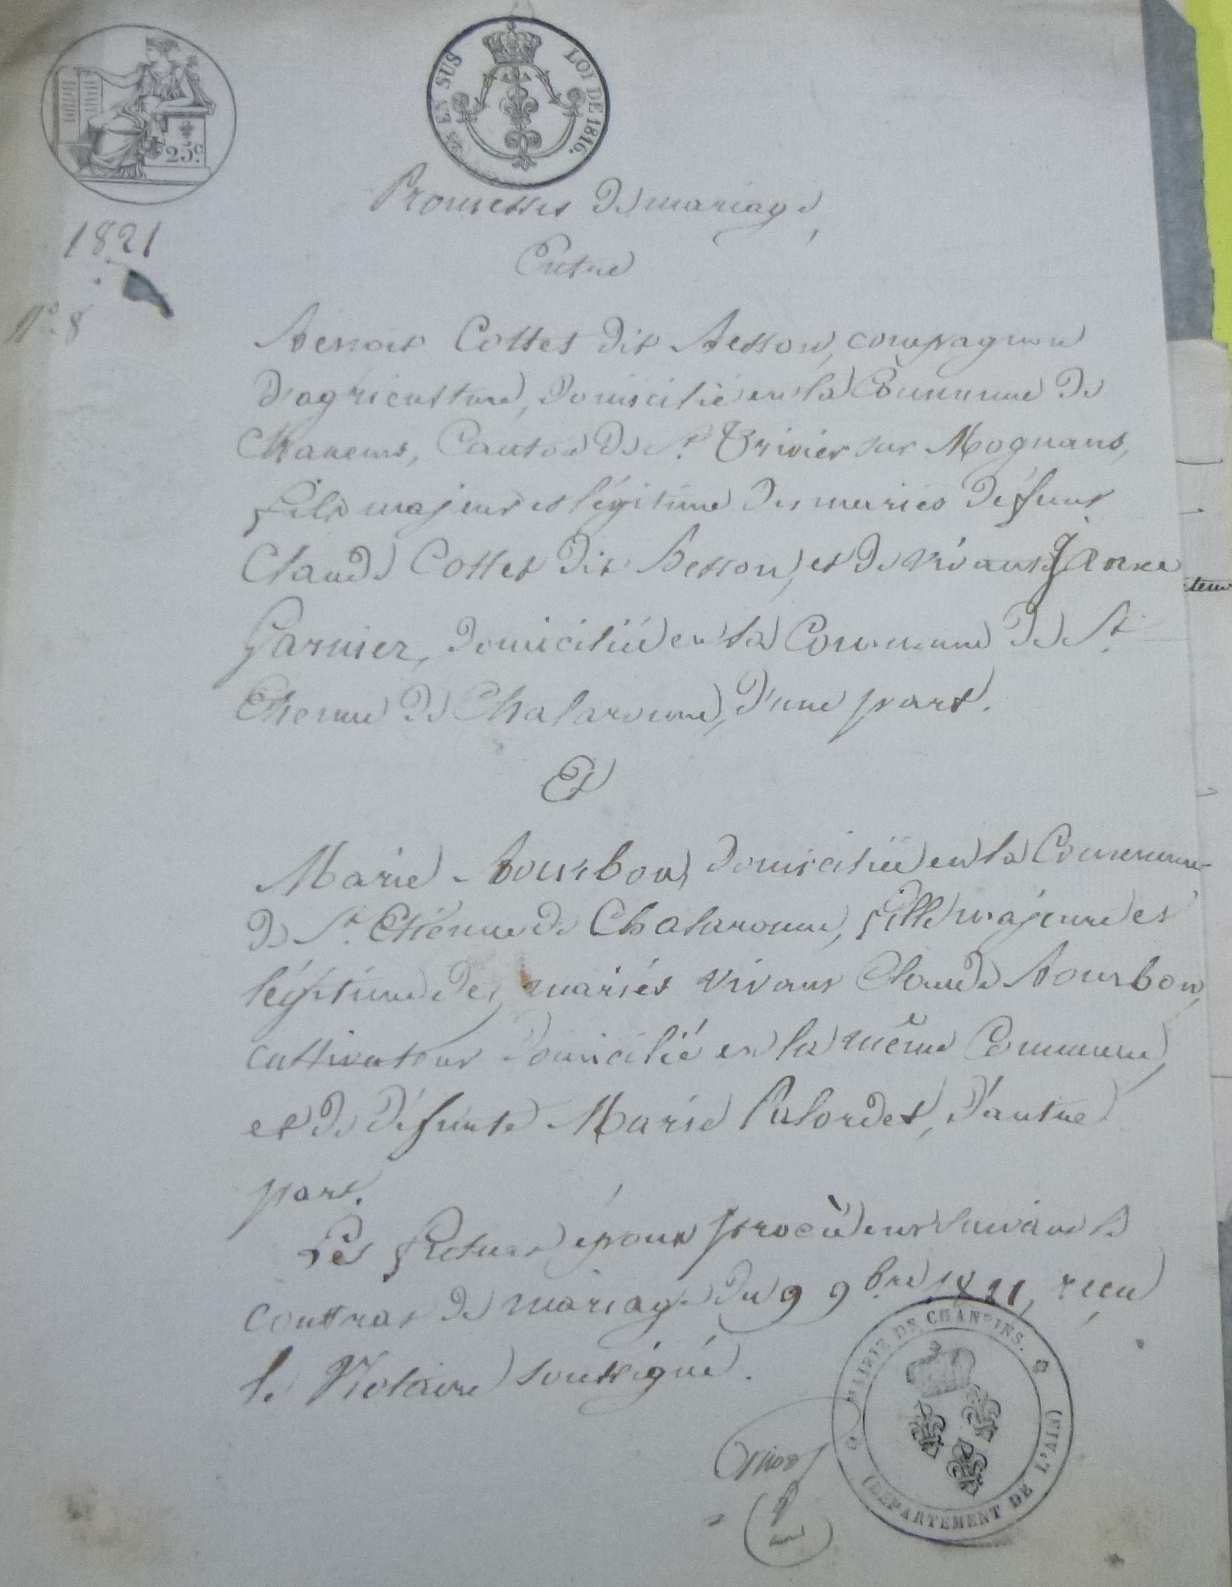 25 c
¼ EN SUS LOI DE 1816.
Promesses de mariage,
1821
Entre
N° 8
Benoit Collet dit Besson, compagnon
d'agriculture, domicilié en la Commune de
Chaneins, Canton de St. Trivier sur Mognans,
fils majeur et légitime des mariés défunt
Claude Collet dit Besson, et de vivante Jeanne
Garnier, domiciliée en la Commune de St.
Etienne de Chalaronne, d'une part.
Et
Marie Bourbon, domiciliée en la Commune
de St. Etienne de Chalaronne, fille majeure et
légitime des mariés vivant Claude Bourbon,
cultivateur domicilié en la même Commune,
et de défunte Marie Palordet, d'autre
part.
Les futurs époux procèdent suivant le
contrat de mariage du 9 9bre 1821, reçu
le Notaire soussigné.
MAIRIE DE CHANEINS.
(DEPARTEMENT DE L'AIN)